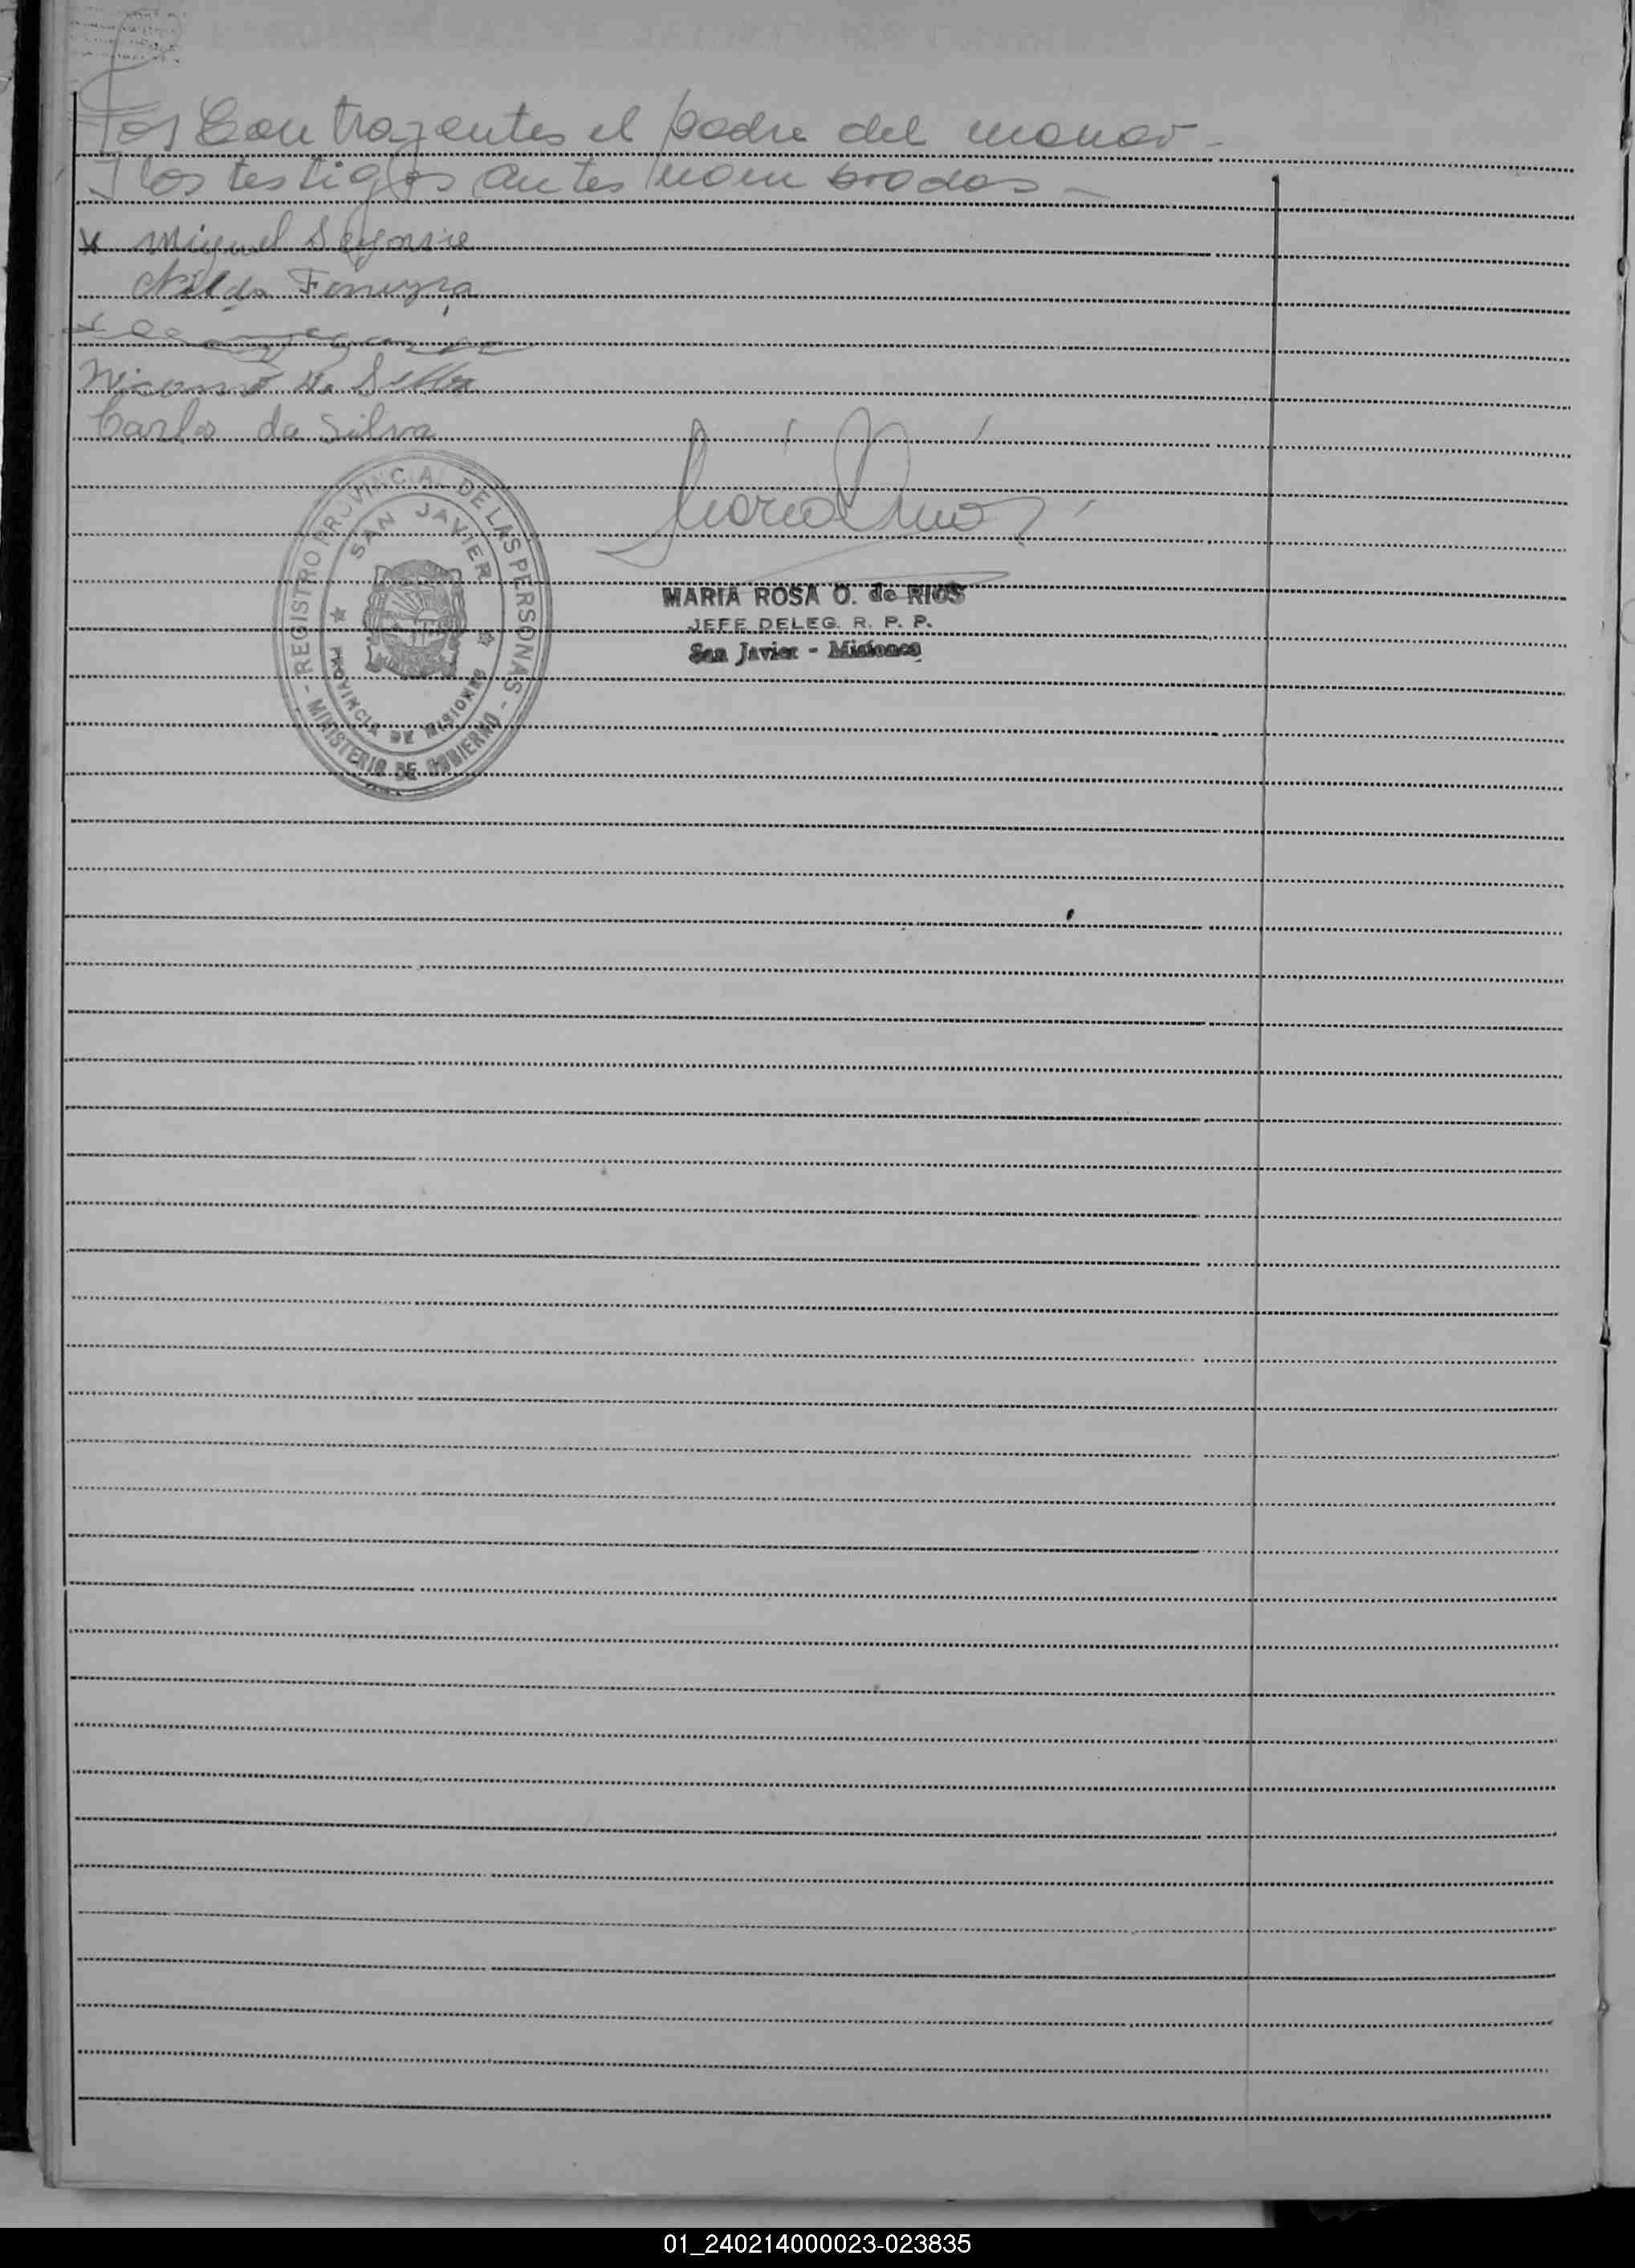 los Contrayentes el padre del menor -
I los testigos antes nombrados -
x Miguel
Nilda Ferreyra
x
da Silva
Carlos da Silva
REGISTRO PROVINCIAL DE LAS PERSONAS
- MINISTERIO DE GOBIERNO -
SAN JAVIER
PROVINCIA DE MISIONES
MARIA ROSA O. de RIOS
JEFE DELEG. R. P. P.
San Javier - Misiones
01_240214000023-023835